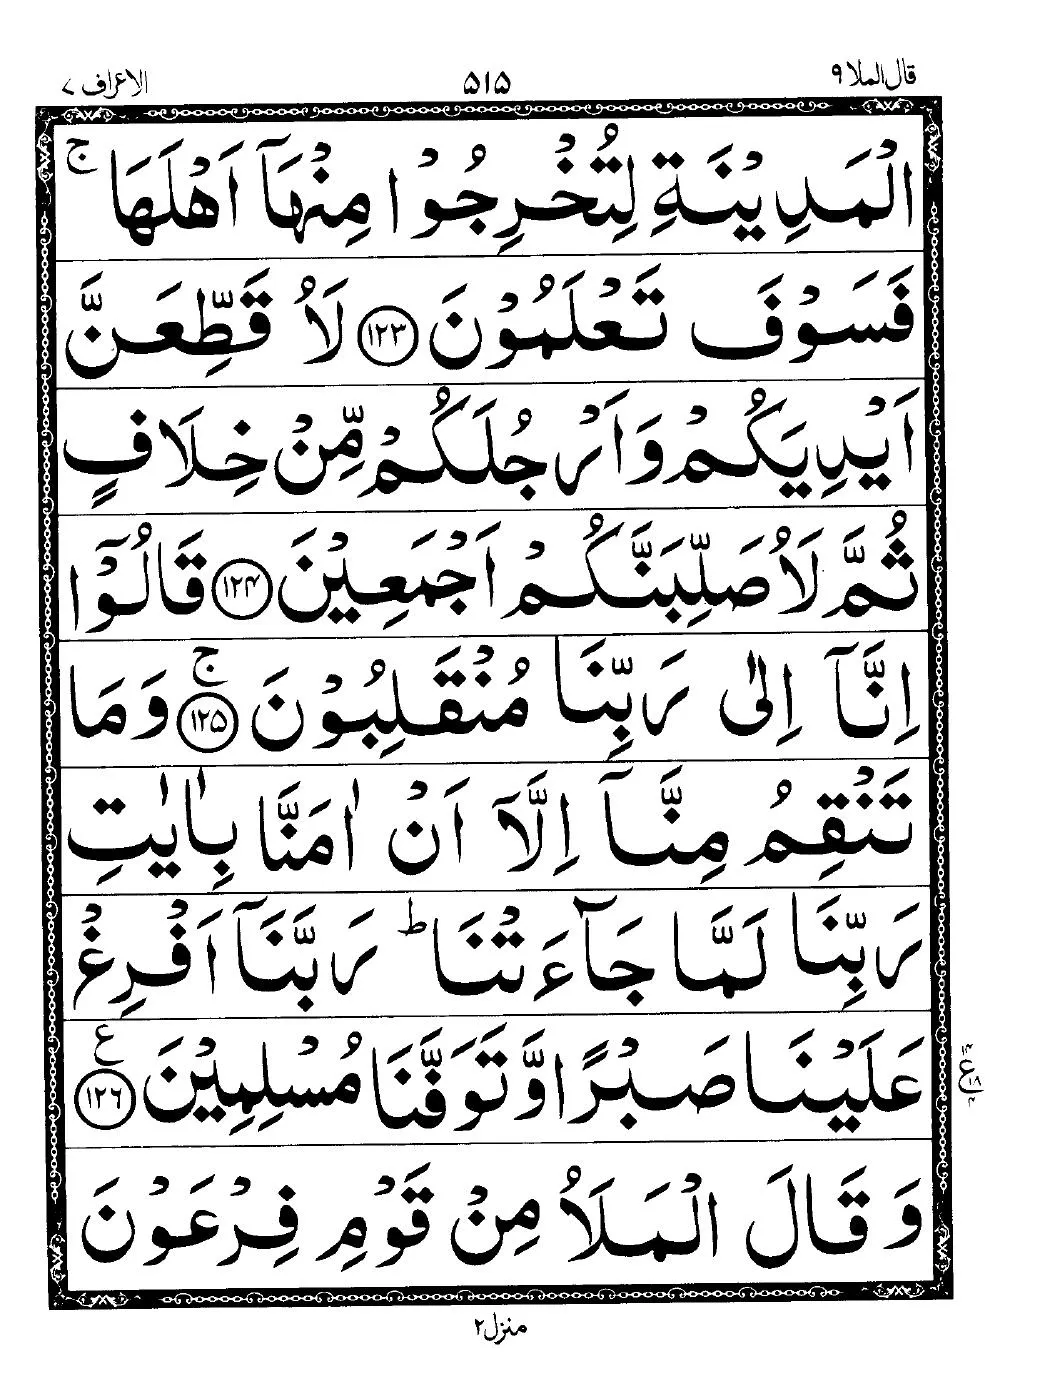 قال الملا ۹
۵۱۵
الاعراف ۷
الْمَدِيْنَةِ لِتُخْرِجُوْا مِنْهَاۤ اَهْلَهَا ۚ
فَسَوْفَ تَعْلَمُوْنَ ﴿۱۲۳﴾ لَاُقَطِّعَنَّ
اَيْدِيَكُمْ وَاَرْجُلَكُمْ مِّنْ خِلَافٍ
ثُمَّ لَاُصَلِّبَنَّكُمْ اَجْمَعِيْنَ ﴿۱۲۴﴾ قَالُوْۤا
اِنَّاۤ اِلٰى رَبِّنَا مُنْقَلِبُوْنَ ۚ﴿۱۲۵﴾ وَمَا
تَنْقِمُ مِنَّاۤ اِلَّاۤ اَنْ اٰمَنَّا بِاٰيٰتِ
رَبِّنَا لَمَّا جَآءَتْنَا ؕ رَبَّنَاۤ اَفْرِغْ
عَلَيْنَا صَبْرًا وَّتَوَفَّنَا مُسْلِمِيْنَ ﴿۱۲۶﴾ ع
وَقَالَ الْمَلَاُ مِنْ قَوْمِ فِرْعَوْنَ
منزل ۲